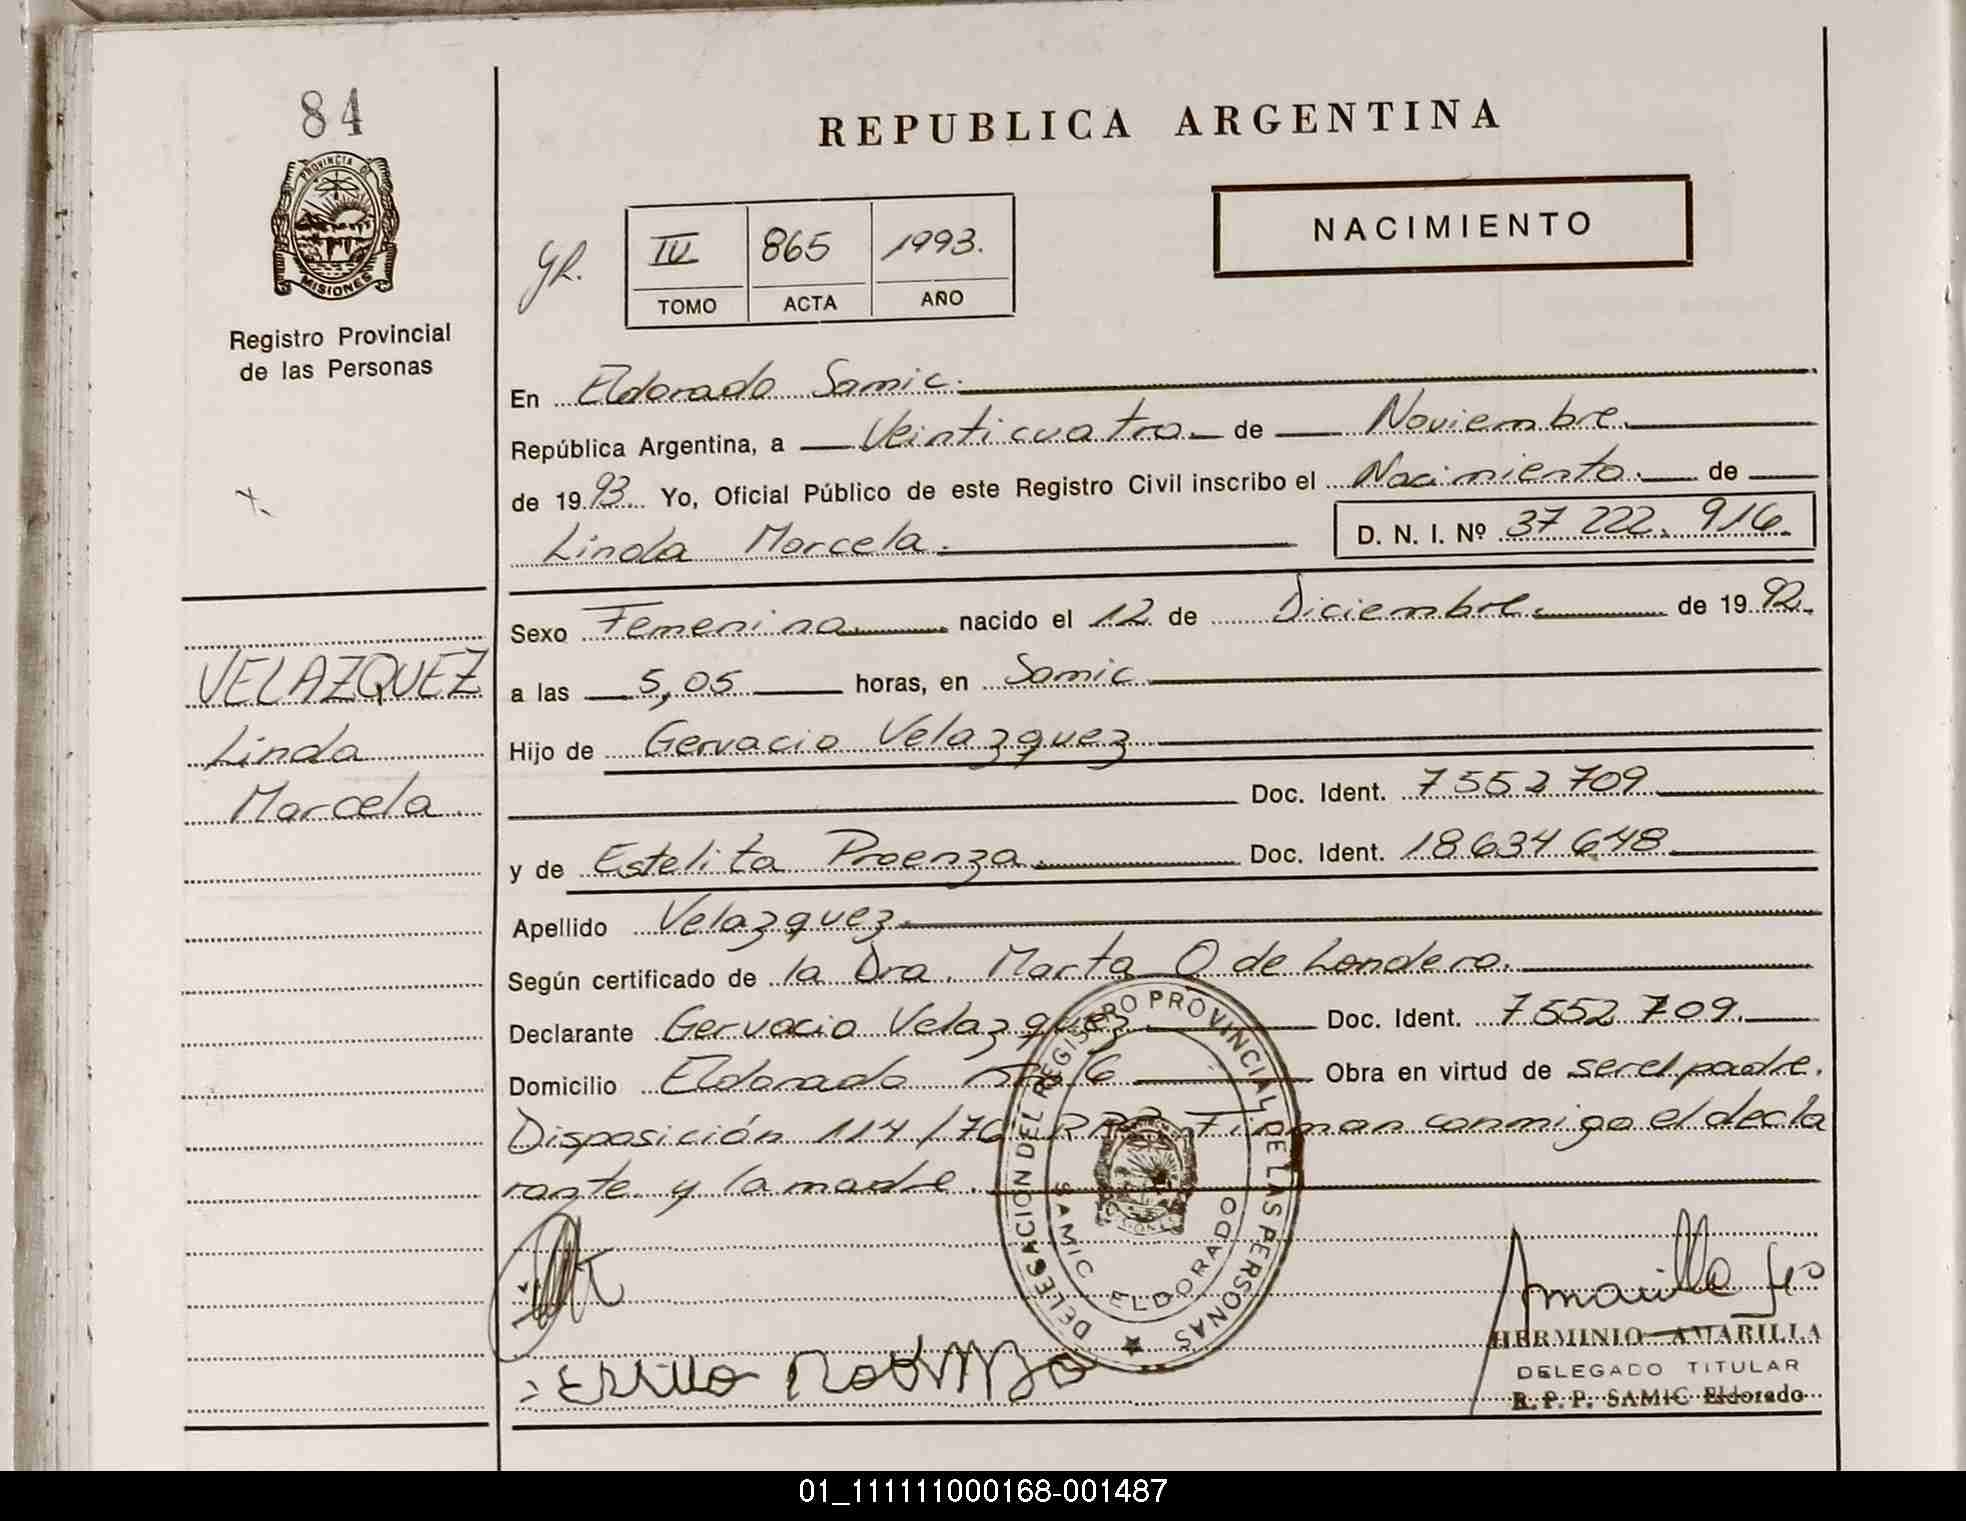 84
PROVINCIA D
MISIONES
Registro Provincial
de las Personas
VELAZQUEZ
Linda
Marcela.
REPUBLICA ARGENTINA
NACIMIENTO
IV 865 1993.
TOMO ACTA AÑO
En Eldorado Samic.
República Argentina, a Veinticuatro de Noviembre
de 1993 Yo, Oficial Público de este Registro Civil inscribo el Nacimiento. de
Linda Marcela. D. N. I. Nº 37 222. 916.
Sexo Femenino nacido el 12 de Diciembre. de 1992.
a las 5,05 horas, en Samic
Hijo de Gervacio Velazquez
Doc. Ident. 7552709
y de Estelita Proenza. Doc. Ident. 18634648
Apellido Velazquez.
Según certificado de la Dra. Marta O de Londero.
Declarante Gervacio Velazquez Doc. Ident. 7552709.
Domicilio Eldorado 6 Obra en virtud de ser el padre.
Disposición 114/76 Firman conmigo el decla
rante y la madre.
DELEGACION DEL REGISTRO PROVINCIAL DE LAS PERSONAS
SAMIC ELDORADO
HERMINIO AMARILLA
DELEGADO TITULAR
R. P. P. SAMIC Eldorado
01_111111000168-001487